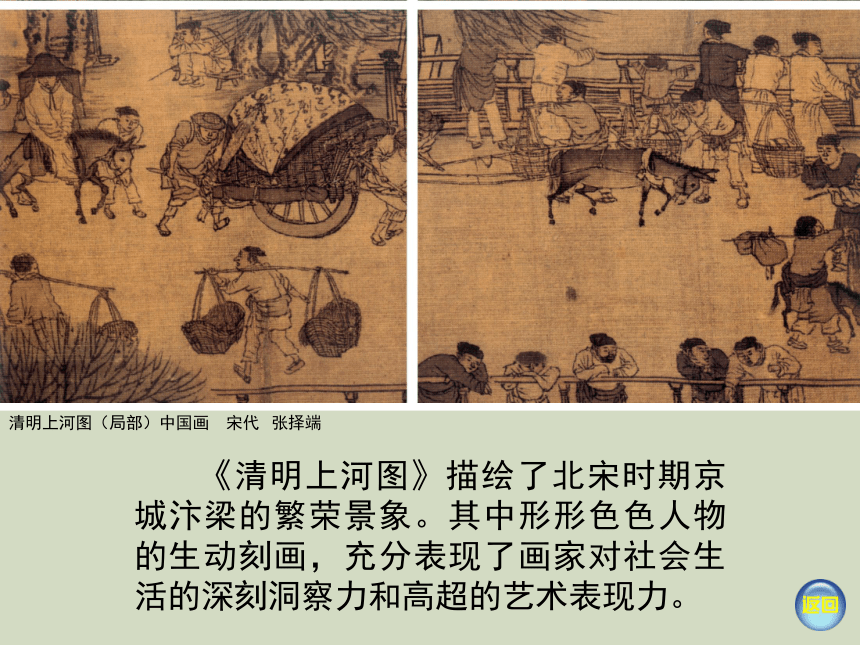 清明上河图（局部）中国画　宋代 张择端
《清明上河图》描绘了北宋时期京
城汴梁的繁荣景象。其中形形色色人物
的生动刻画，充分表现了画家对社会生
活的深刻洞察力和高超的艺术表现力。
返回